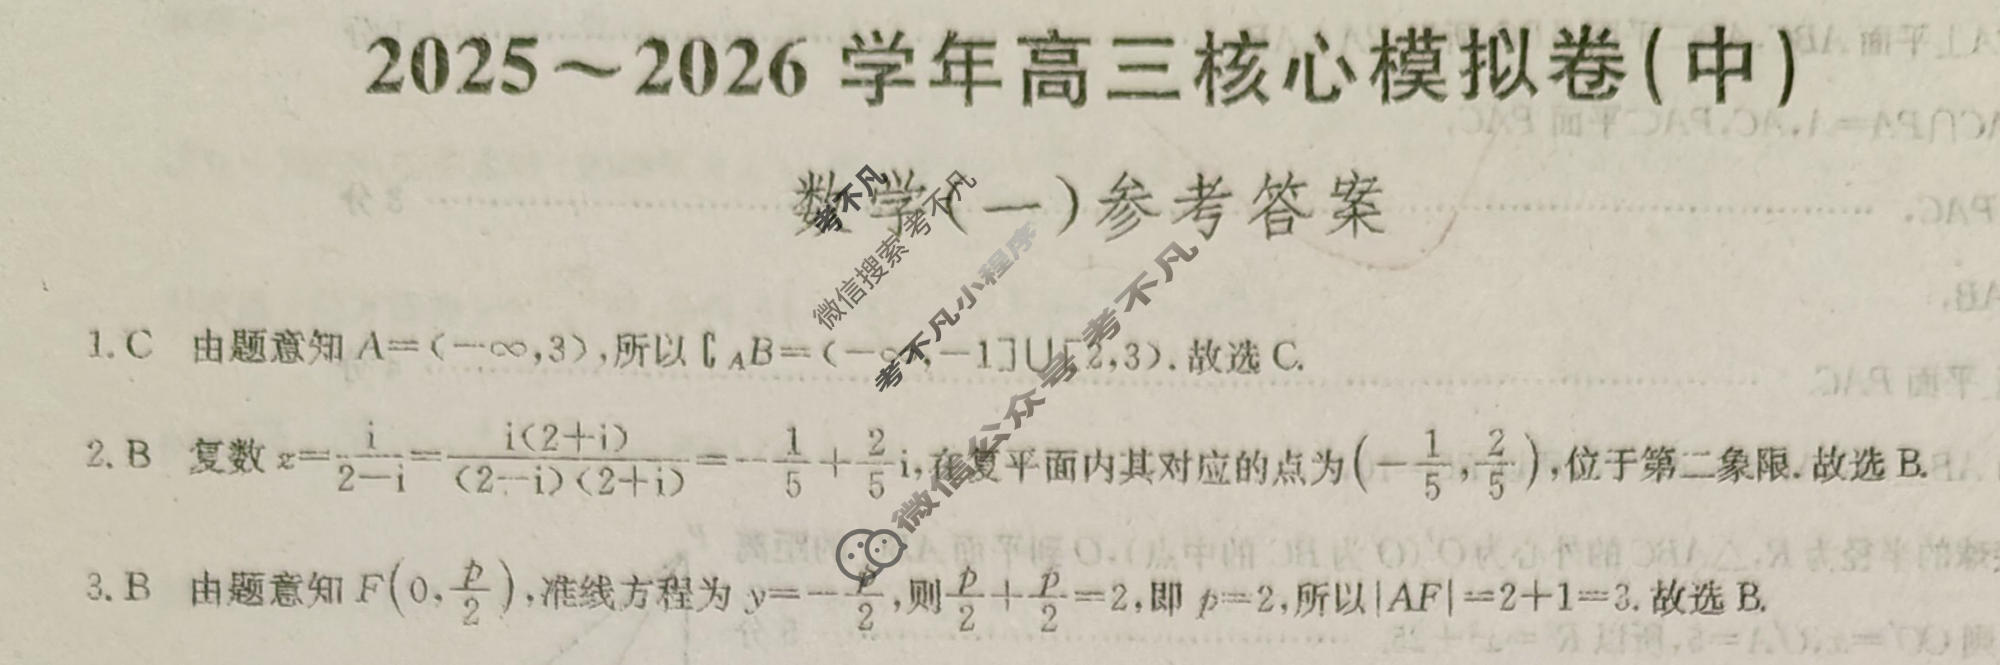 2025～2026 学年高三核心模拟卷(中)
数学(一)参考答案
1. C 由题意知 A=(-∞,3),所以∁_A B=(-∞,-1]∪[2,3). 故选 C.
2. B 复数 z=i/(2-i)=i(2+i)/((2-i)(2+i))=-1/5+2/5 i,在复平面内其对应的点为(-1/5,2/5),位于第二象限. 故选 B.
3. B 由题意知 F(0,p/2),准线方程为 y=-p/2,则p/2+p/2=2,即 p=2,所以|AF|=2+1=3. 故选 B.
考不凡
微信搜索考不凡
考不凡小程序
微信公众号 考不凡